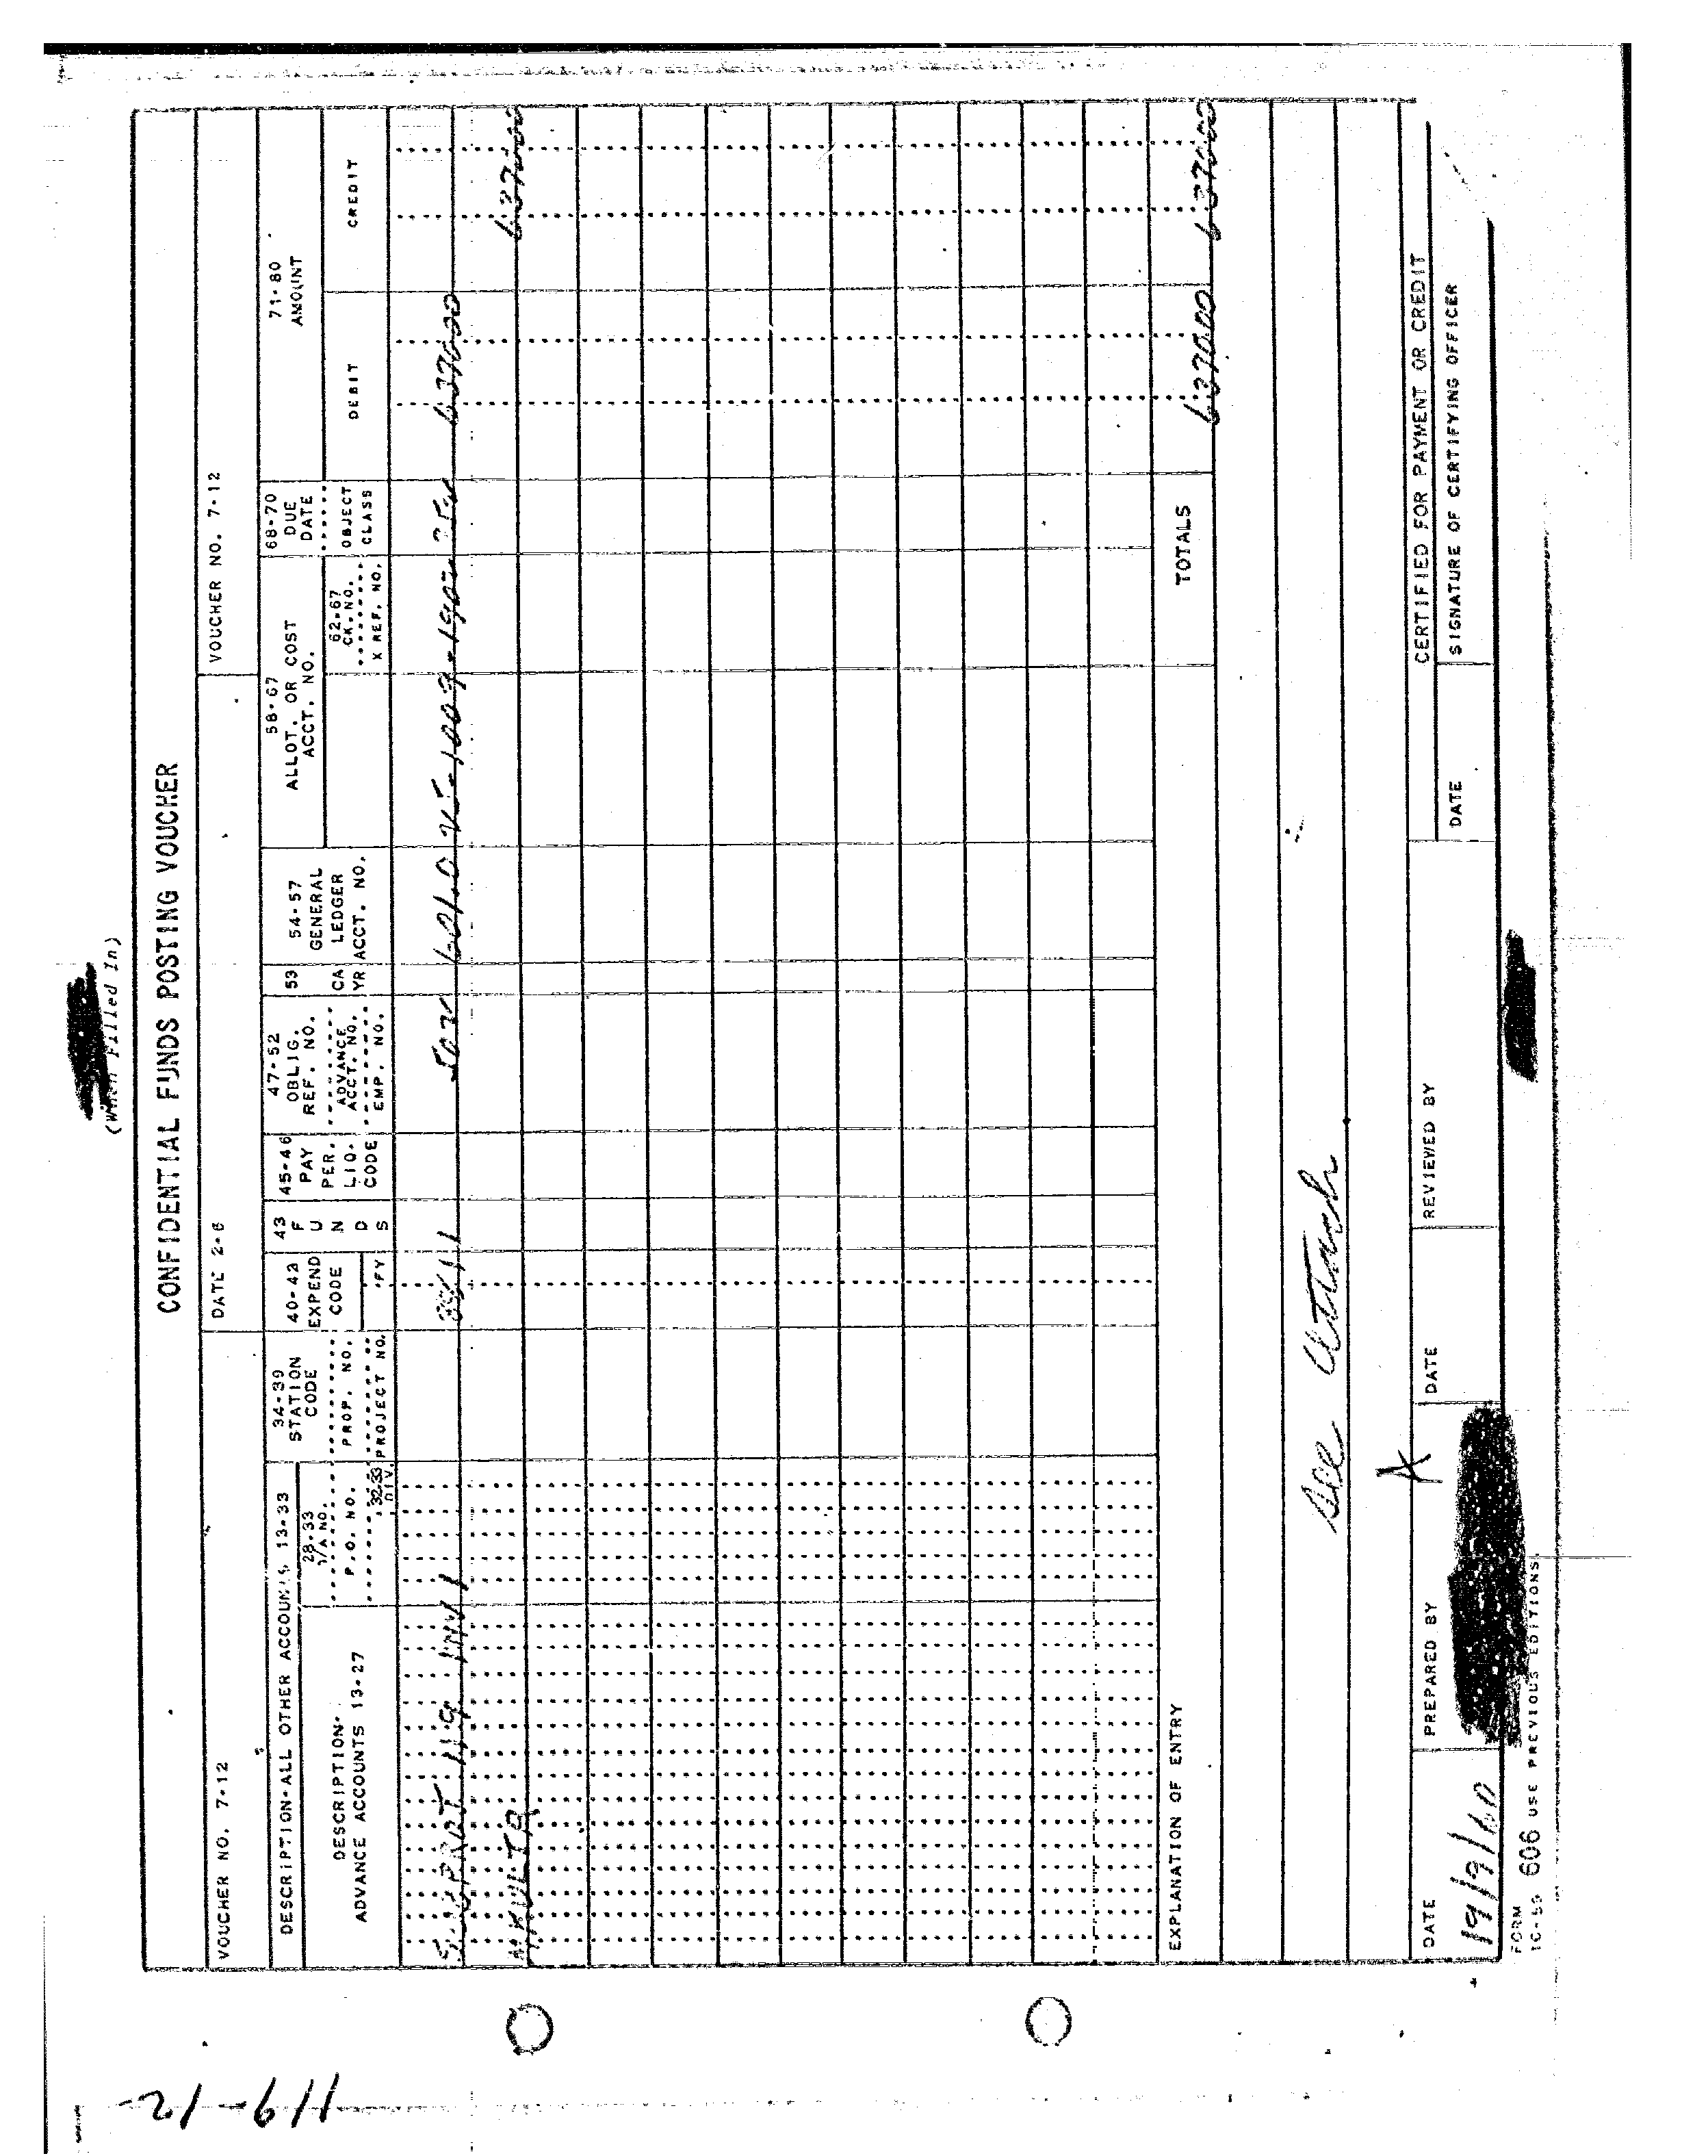 119-12
(When Filled In)
CONFIDENTIAL FUNDS POSTING VOUCHER
VOUCHER NO. 7-12 DATE 2-6 VOUCHER NO. 7-12
DESCRIPTION-ALL OTHER ACCOUNTS 13-33
DESCRIPTION-
ADVANCE ACCOUNTS 13-27
28-33
T/A NO.
P.O. NO.
32-33
DIV.
34-39
STATION
CODE
PROP. NO.
PROJECT NO.
40-42
EXPEND
CODE
FY
43
F
U
N
D
S
45-46
PAY
PER.
LIQ.
CODE
47-52
OBLIG.
REF. NO.
ADVANCE
ACCT. NO.
EMP. NO.
53
CA
YR
54-57
GENERAL
LEDGER
ACCT. NO.
58-67
ALLOT. OR COST
ACCT. NO.
62-67
CK. NO.
X REF. NO.
68-70
DUE
DATE
OBJECT
CLASS
71-80
AMOUNT
DEBIT
CREDIT
119 INV 1
MKULTRA
TOTALS
EXPLANATION OF ENTRY
See Attach
CERTIFIED FOR PAYMENT OR CREDIT
DATE PREPARED BY DATE REVIEWED BY DATE SIGNATURE OF CERTIFYING OFFICER
FORM
10-59 606 USE PREVIOUS EDITIONS.